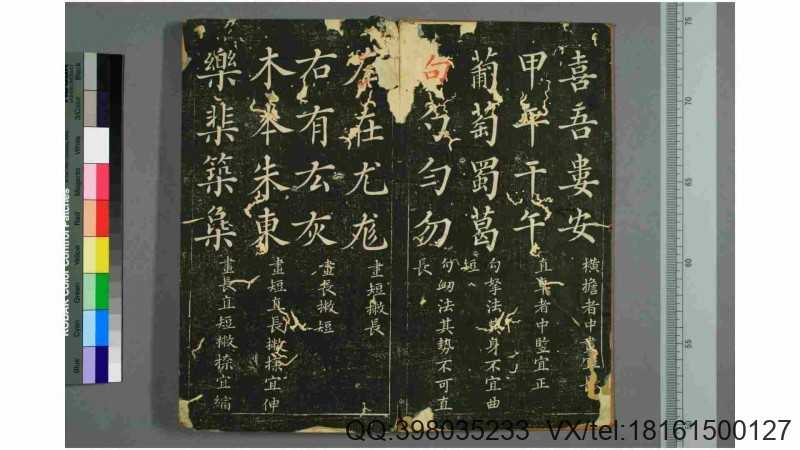 喜吾婁安
橫擔者中畫宜長
甲平干午
直卓者中竪宜正
葡萄蜀葛
勾拏法其身不宜曲
短
句勻勿
勾衂法其勢不可直
長
左在尤尨
畫短撇長
右有厷灰
畫長撇短
木本朱東
畫短直長撇捺宜伸
樂棐築
畫長直短撇捺宜縮
QQ:398035233 VX/tel:18161500127